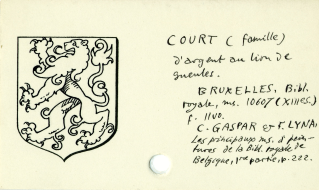 COURT (famille)
d'argent au lion de
gueules.
BRUXELLES, Bibl.
royale, ms. 10607 (XIIIe s.)
f. 110.
C. GASPAR et F. LYNA,
Les principaux ms. à pein-
tures de la Bibl. royale de
Belgique, 1re partie, p. 222.